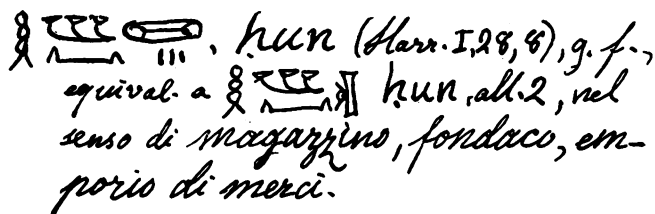 ḥun (Harr. I, 28, 8), g. f.,
equival. a ḥun, all. 2, nel
senso di magazzino, fondaco, em-
porio di merci.